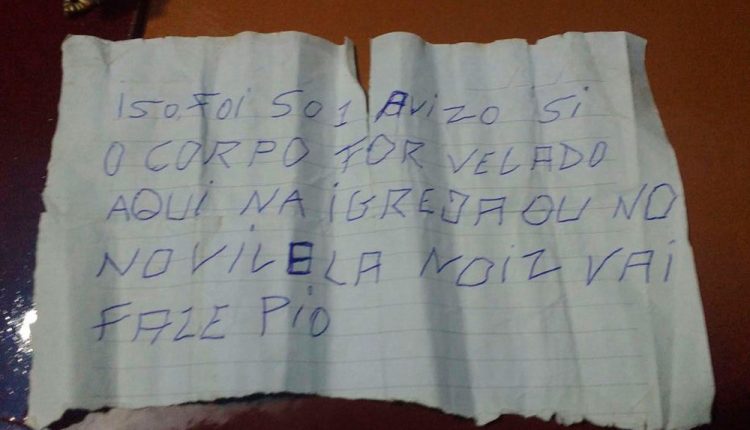 iSO FOi SO 1 AViZO Si
O CORPO FOR VELADO
AQUi NA iGREJA OU NO
NOViLELA NOiZ VAi
FAZE PiO